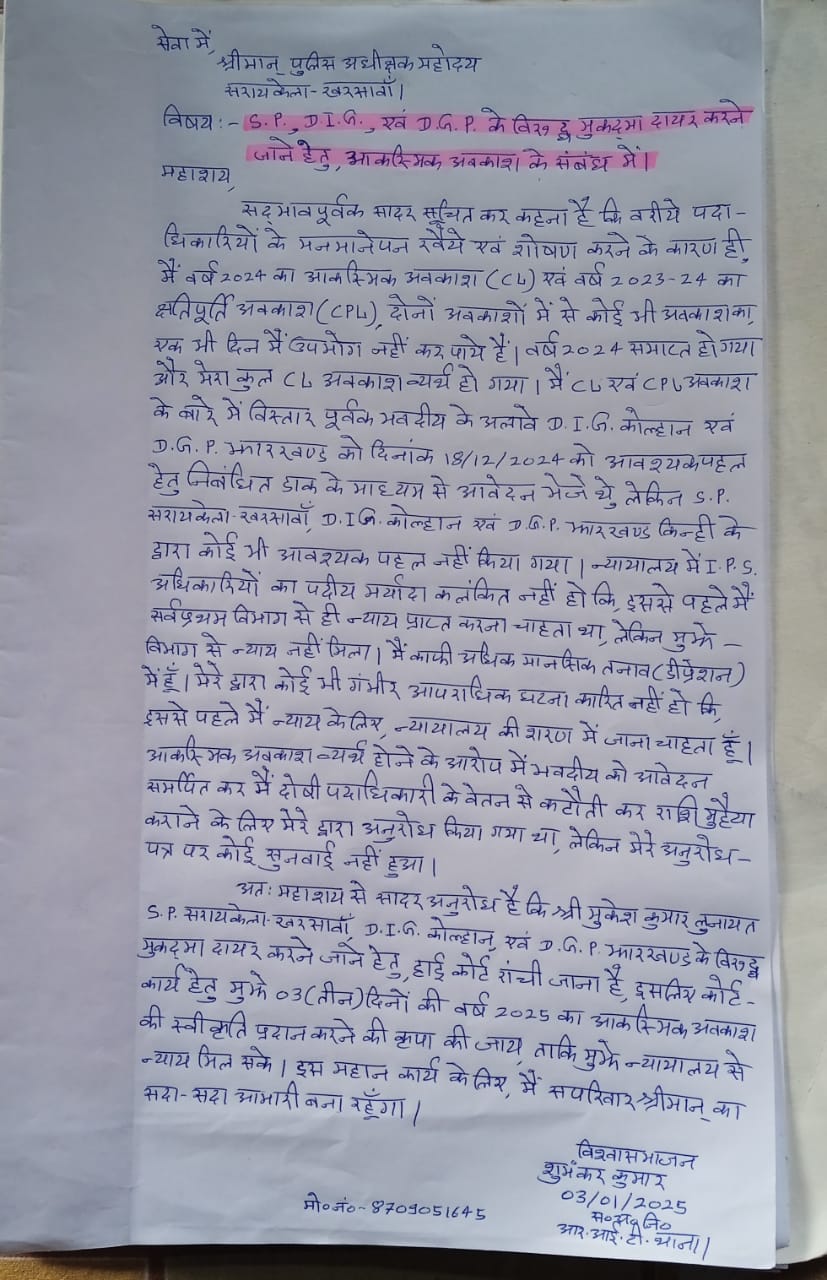 सेवा में,
श्रीमान् पुलिस अधीक्षक महोदय
सरायकेला-खरसावाँ।
विषय:- S.P., D.I.G., एवं D.G.P. के विरुद्ध मुकदमा दायर करने
जाने हेतु, आकस्मिक अवकाश के संबंध में।
महाशय,
सद्भावपूर्वक सादर सूचित कर कहना है कि वरीये पदा-
धिकारियों के मनमानेपन रवैये एवं शोषण करने के कारण ही,
मैं वर्ष 2024 का आकस्मिक अवकाश (CL) एवं वर्ष 2023-24 का
क्षतिपूर्ति अवकाश (CPL), दोनों अवकाशों में से कोई भी अवकाश का,
एक भी दिन मैं उपभोग नहीं कर पाये हैं। वर्ष 2024 समाप्त हो गया
और मेरा कुल CL अवकाश व्यर्थ हो गया। मैं CL एवं CPL अवकाश
के बारे में विस्तार पूर्वक भवदीय के अलावे D.I.G. कोल्हान एवं
D.G.P. झारखण्ड को दिनांक 18/12/2024 को आवश्यक पहल
हेतु निबंधित डाक के माध्यम से आवेदन भेजे थे, लेकिन S.P.
सरायकेला-खरसावाँ, D.I.G. कोल्हान एवं D.G.P. झारखण्ड किन्ही के
द्वारा कोई भी आवश्यक पहल नहीं किया गया। न्यायालय में I.P.S.
अधिकारियों का पदीय मर्यादा कलंकित नहीं हो कि, इससे पहले मैं
सर्वप्रथम विभाग से ही न्याय प्राप्त करना चाहता था, लेकिन मुझे -
विभाग से न्याय नहीं मिला। मैं काफी अधिक मानसिक तनाव (डीप्रेशन)
में हूँ। मेरे द्वारा कोई भी गंभीर आपराधिक घटना कारित नहीं हो कि,
इससे पहले मैं न्याय के लिए, न्यायालय की शरण में जाना चाहता हूँ।
आकस्मिक अवकाश व्यर्थ होने के आरोप में भवदीय को आवेदन
समर्पित कर मैं दोषी पदाधिकारी के वेतन से कटौती कर राशि मुहैया
कराने के लिए मेरे द्वारा अनुरोध किया गया था, लेकिन मेरे अनुरोध-
पत्र पर कोई सुनवाई नहीं हुआ।
अतः महाशय से सादर अनुरोध है कि श्री मुकेश कुमार लुनायत
S.P. सरायकेला-खरसावाँ, D.I.G. कोल्हान, एवं D.G.P. झारखण्ड के विरुद्ध
मुकदमा दायर करने जाने हेतु, हाई कोर्ट रांची जाना है, इसलिए कोर्ट-
कार्य हेतु मुझे 03 (तीन) दिनों की वर्ष 2025 का आकस्मिक अवकाश
की स्वीकृति प्रदान करने की कृपा की जाय, ताकि मुझे न्यायालय से
न्याय मिल सके। इस महान कार्य के लिए, मैं सपरिवार श्रीमान् का
सदा-सदा आभारी बना रहूँगा।
विश्वासभाजन
शुभंकर कुमार
03/01/2025
स०अ०नि०
आर.आई.टी. थाना।
मो०नं०-8709051645